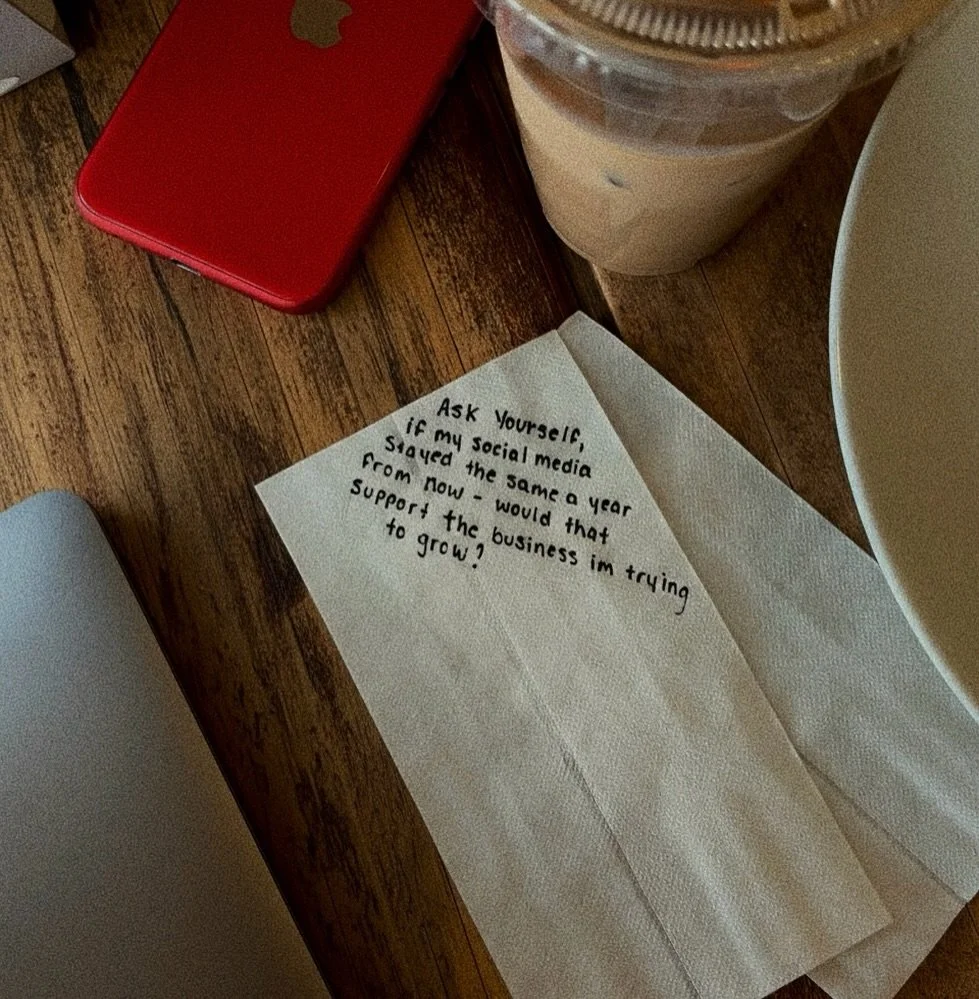 Ask Yourself,
if my social media
stayed the same a year
from now - would that
support the business im trying
to grow?